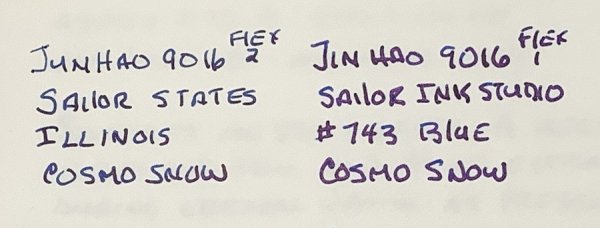 JUNHAO 9016 FLEX 2
SAILOR STATES
ILLINOIS
COSMO SNOW
JINHAO 9016 FLEX 1
SAILOR INK STUDIO
#743 BLUE
COSMO SNOW